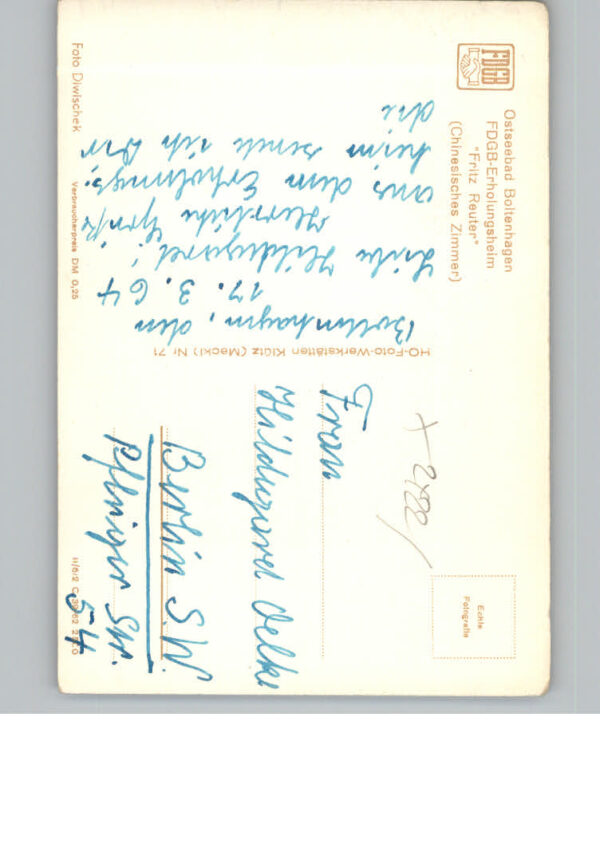 FDGB
Ostseebad Boltenhagen
FDGB-Erholungsheim
"Fritz Reuter"
(Chinesisches Zimmer)
Boltenhagen, den
17. 3. 64
Liebe Hildegard!
Herzliche Grüße
aus dem Erholungs-
heim sende ich Dir
die
Foto Diwischek
Verbraucherpreis DM 0,25
HO-Foto-Werkstätten Klütz (Meckl) Nr 71
Echte
Fotografie
Frau
Hildegard Oelke
Berlin S.W.
54